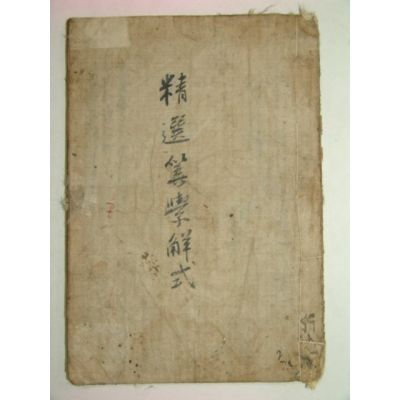 精選筭學解式